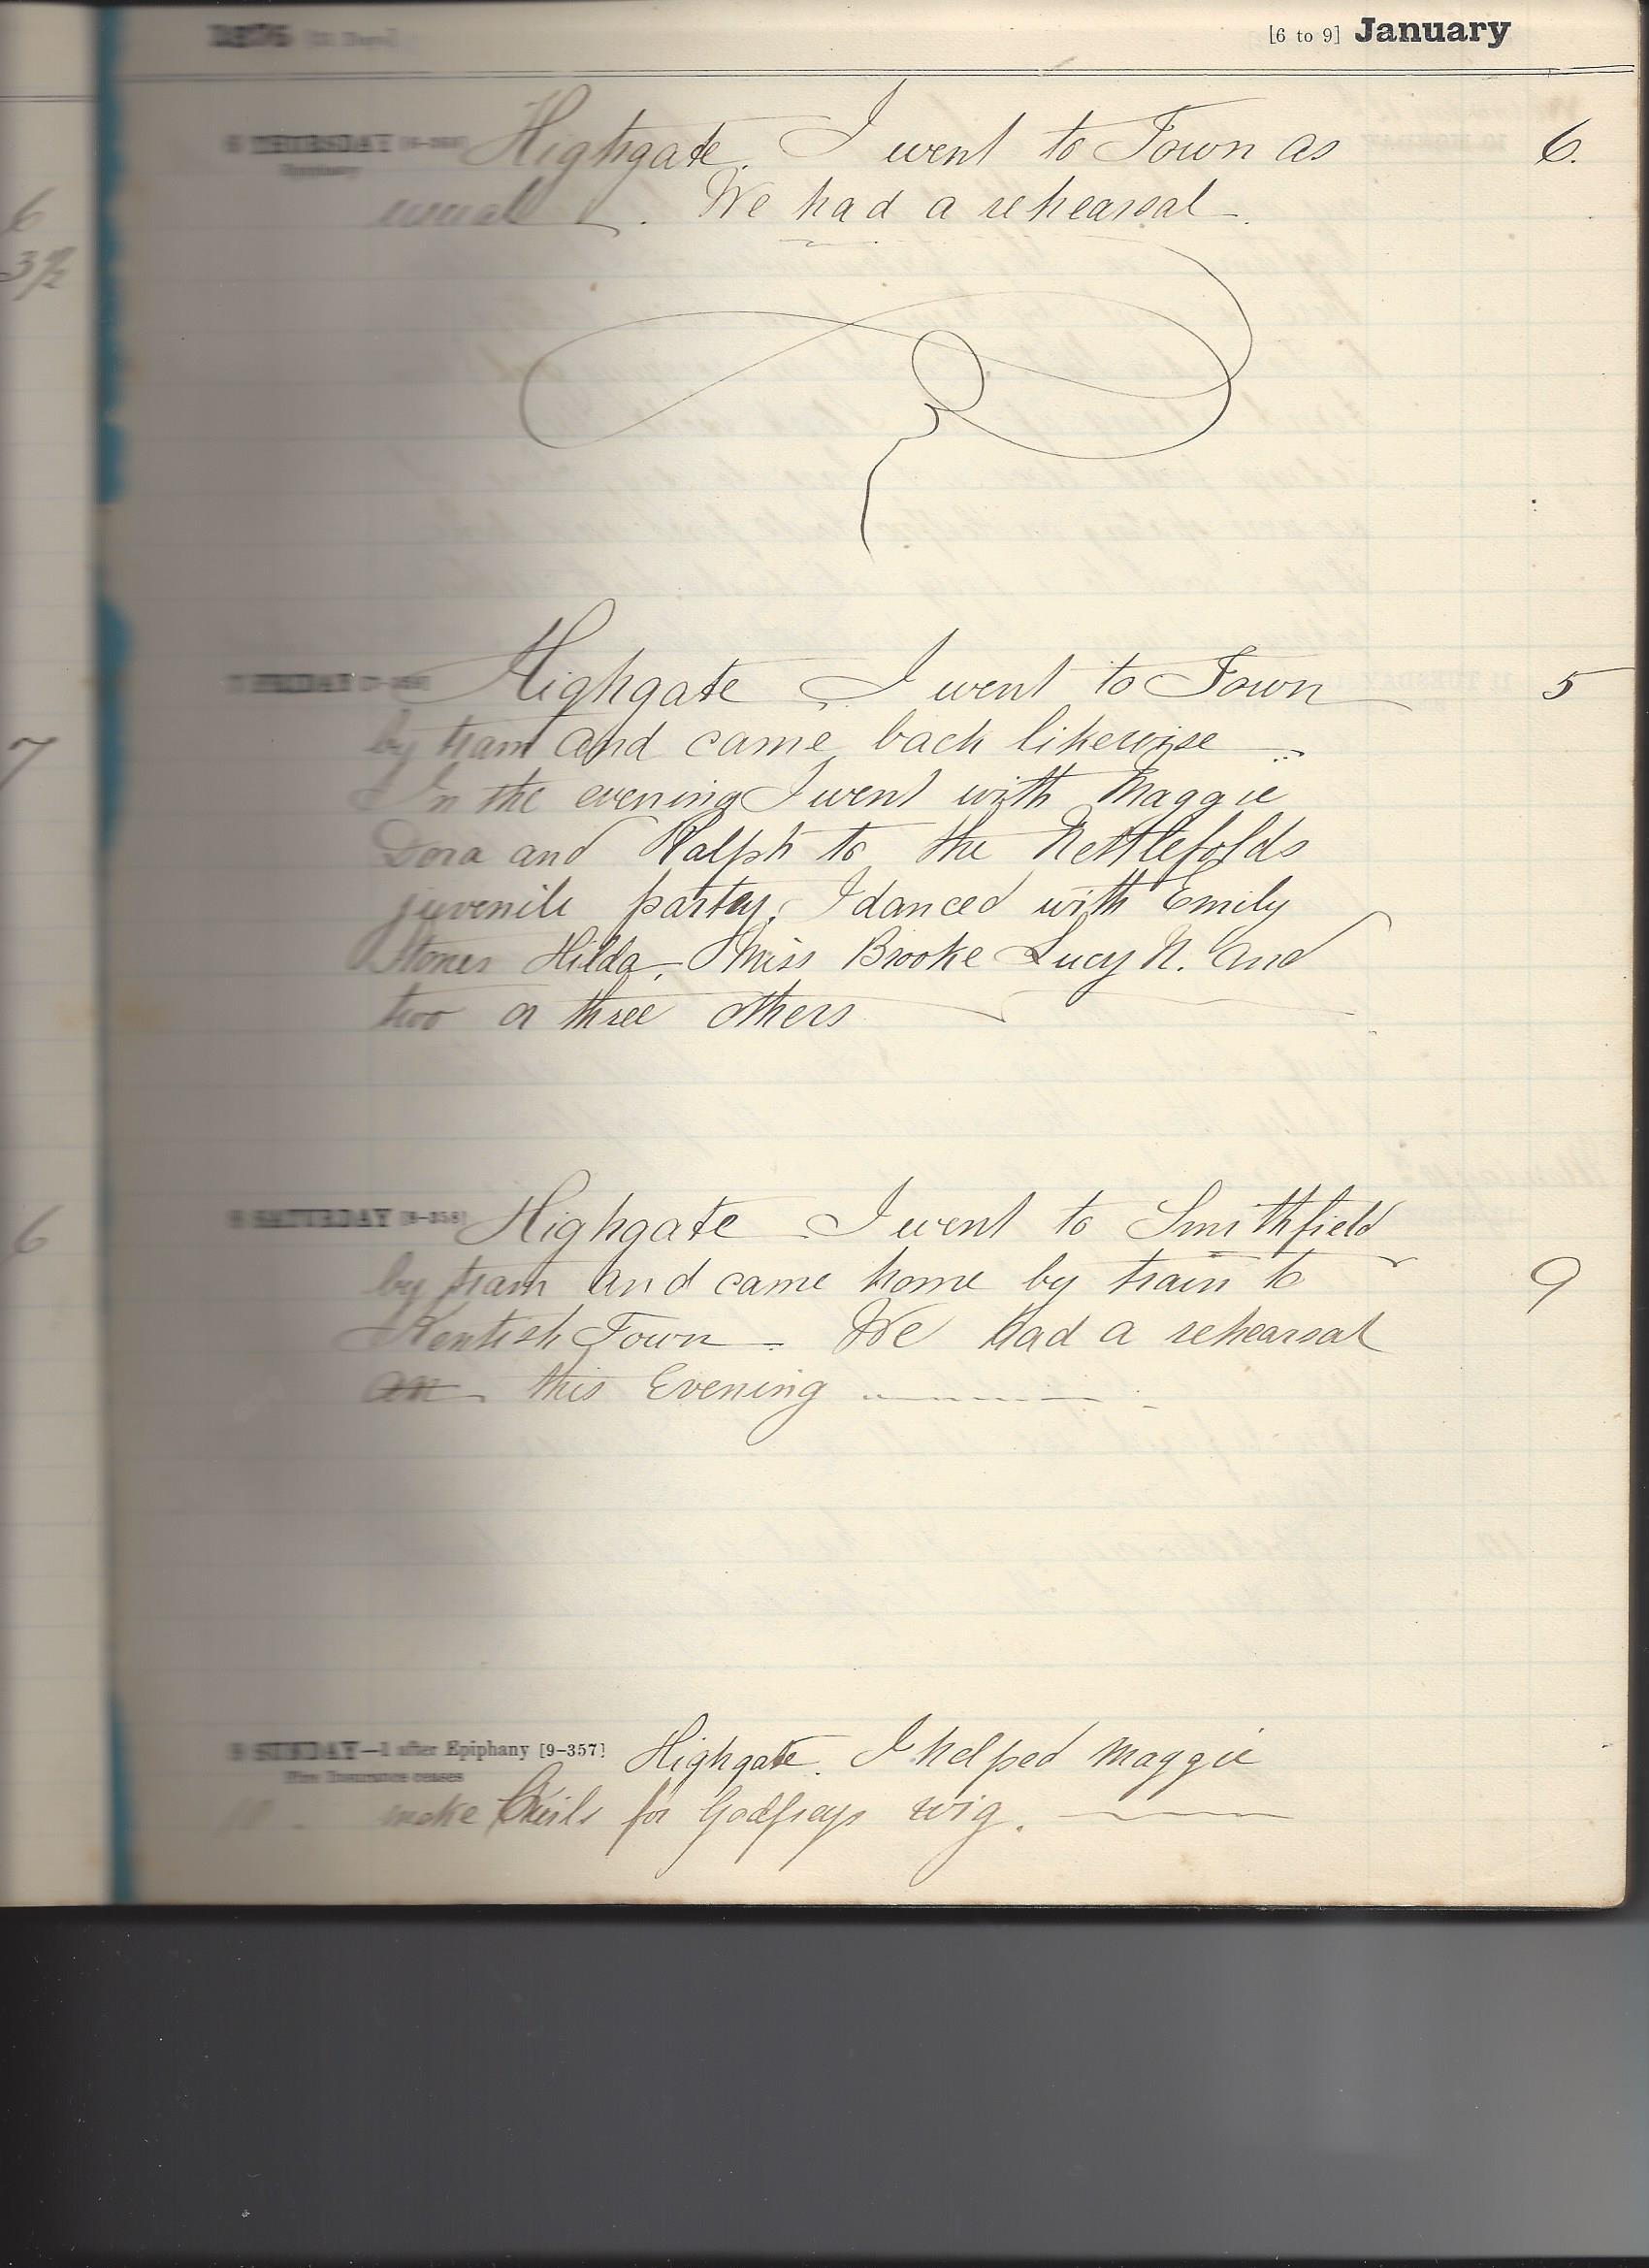 1876
[6 to 9] January
6 THURSDAY Highgate. I went to Town as 6.
usual. We had a rehearsal
6
3½
7 FRIDAY Highgate I went to Town 5
by tram and came back likewise
7
In the evening I went with Maggie
Dora and Ralph to the Nettlefolds
juvenile party. I danced with Emily
Stones Hilda, Miss Brooke Lucy N. and
two or three others
8 SATURDAY [8-358] Highgate I went to Smithfield
6
by tram and came home by train to 9
Kentish Town - We had a rehearsal
an this Evening
9 SUNDAY—1 after Epiphany [9-357] Highgate. I helped Maggie
Fire Insurance ceases
make Curls for Godfreys wig.